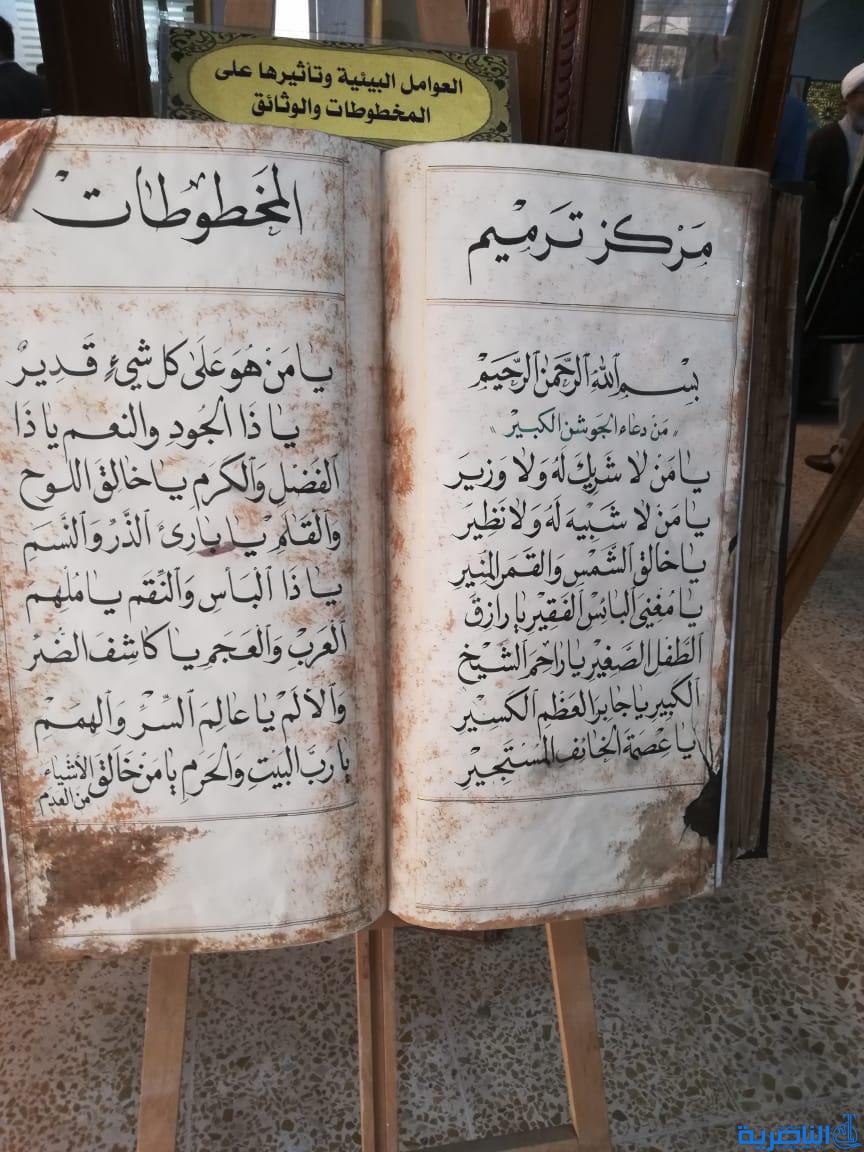 العوامل البيئية وتأثيرها على
المخطوطات والوثائق
مَركز تَرميم
بِسْمِ ٱللهِ ٱلرَّحْمٰنِ ٱلرَّحِيْمِ
"من دعاء الجوشن الكبير"
يا مَنْ لا شَرِيكَ لَهُ وَلا وَزيرَ
يا مَنْ لا شَبيهَ لَهُ وَلا نَظِيَر
يا خالِقَ الشَّمْسِ وَالقَمَرِ المُنيرِ
يا مُغْنِيَ البائِسِ ٱلفَقيرِ يا رازِقَ
الطِّفلِ الصَّغيرِ يا راحِمَ الشَّيْخِ
الكَبيرِ يا جابِرَ العَظمِ الكَسيرِ
يا عِصْمَةَ الخائِفِ المُسْتَجيرِ
المخطوطات
يا مَنْ هُوَ عَلَىٰ كلِ شَيءٍ قَديرٌ
يا ذَا الجُودِ والنعم يا ذَا
الفَضْلِ وَٱلكَرَمِ يا خالِقَ اللوح
وَالقَلَمِ يا بارِئَ ٱلذَّرِ وَٱلنَّسَمِ
يا ذَا ٱلبَأسِ وَٱلنِّقَم يا مُلْهِمَ
العَرَبِ وَٱلعَجَمِ يا كاشِفَ الضُرِ
وَٱلأَلَمِ يا عالِمَ ٱلسِّرِ وَٱلهِمَمِ
يا رَبَّ البَيْتِ وَالحَرَمِ يا مَنْ خالَق الأشياء
من العدم
الناصرية